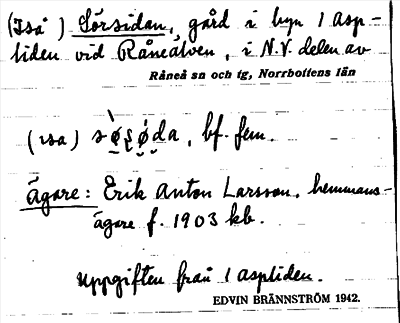 (Iså) Sörsidan, gård i byn 1 Asp-
liden vid Råneälven, i N.V. delen av
Råneå sn och tg, Norrbottens län
(ısa) sø̀ṣǿda, bf. fem.
ägare: Erik Anton Larsson, hemmans-
ägare f. 1903 kb.
Uppgiften från 1 aspliden.
EDVIN BRÄNNSTRÖM 1942.